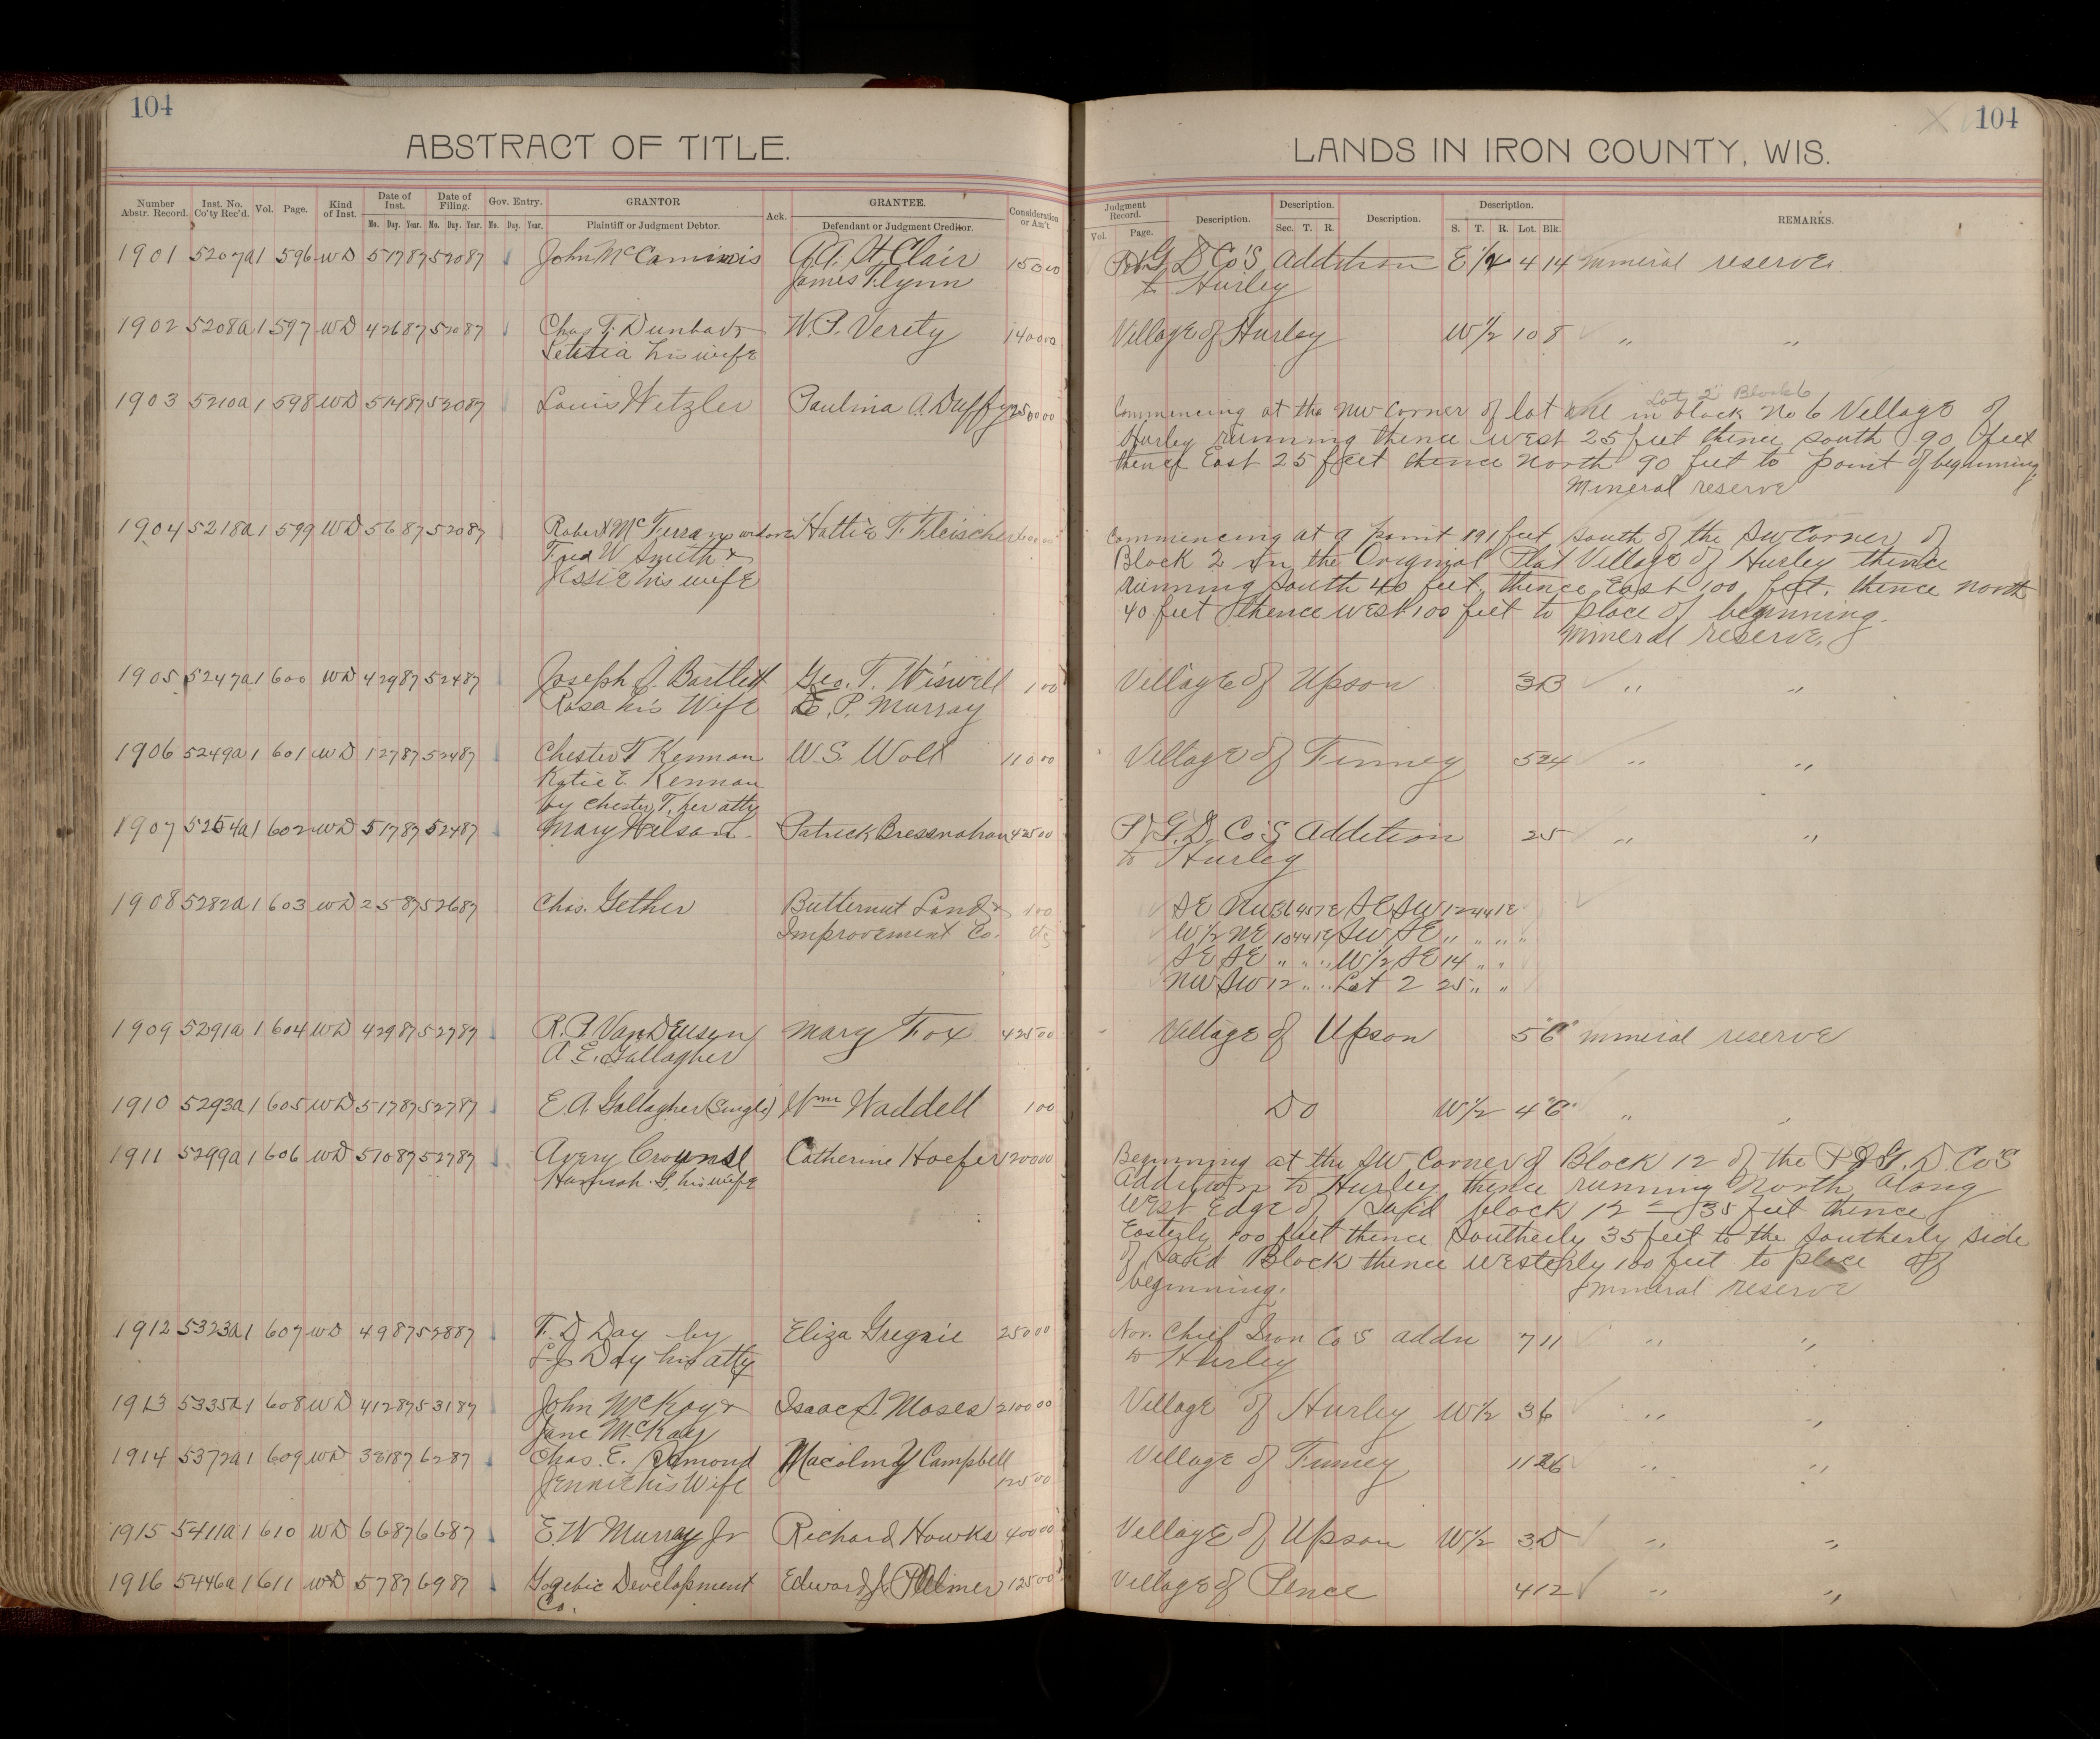 104
ABSTRACT OF TITLE.
Number Abstr. Record. Inst. No. Co'ty Rec'd. Vol. Page. Kind of Inst. Date of Inst. Date of Filing. Gov. Entry. GRANTOR Ack. GRANTEE. Consideration or Am't.
Mo. Day. Year. Mo. Day. Year. Mo. Day. Year. Plaintiff or Judgment Debtor. Defendant or Judgment Creditor.
1901 5207a 1 596 WD 5 17 87 5 20 87 John McCaminis A. St Clair 150 00
James Flynn
1902 5208a 1 597 WD 4 26 87 5 20 87 Chas T. Dunbar & W. P. Verity 1400 00
Letitia his wife
1903 5210a 1 598 WD 5 14 87 5 20 87 Louis Wetzler Paulina A Duffy 2500 00
1904 5218a 1 599 WD 5 6 87 5 20 87 Robert McFerran Hattie F. Fleischer
Fred W Smith &
Jessie his wife
1905 5247a 1 600 WD 4 29 87 5 24 87 Joseph J. Bartlett Geo. T. Wiswell 1 00
Rosa his Wife E. P. Murray
1906 5249a 1 601 WD 1 27 87 5 24 87 Chester T Kennan W. S. Wolt 110 00
Katie E. Kennan
by Chester T. her atty
1907 5254a 1 602 WD 5 17 87 5 24 87 Mary Wilson Patrick Bressnahan 425 00
1908 5282a 1 603 WD 2 5 87 5 26 87 Chas. Gether Butternut Land & 1 00
Improvement Co.
1909 5291a 1 604 WD 4 29 87 5 27 87 R. P. VanDeusen Mary Fox 425 00
A E. Gallagher
1910 5293a 1 605 WD 5 17 87 5 27 87 E. A. Gallagher (Single) Wm Waddell 1 00
1911 5299a 1 606 WD 5 10 87 5 27 87 Avery Crounse Catherine Hoefer 200 00
Hannah G. his wife
1912 5323a 1 607 WD 4 9 87 5 28 87 T. D Day by Eliza Gregrie 250 00
Day his atty
1913 5335a 1 608 WD 4 12 87 5 31 87 John McKay & Isaac S. Moses 2100 00
Jane McKay
1914 5372a 1 609 WD 3 21 87 6 2 87 Chas. E. Macolm Y Campbell
Jennie his Wife 125 00
1915 5411a 1 610 WD 6 6 87 6 6 87 E. W Murray Jr Richard Hawks 400 00
1916 5446a 1 611 WD 5 7 87 6 9 87 Gogebic Development Edward J. Palmer 125 00
Co.
104
LANDS IN IRON COUNTY, WIS.
Judgment Record. Description. Description. Description. Description. REMARKS.
Vol. Page. Sec. T. R. S. T. R. Lot. Blk.
G. D Co's Addition E 1/2 4 14 Mineral reserve
to Hurley
Village of Hurley W 1/2 10 8 " "
Lot 2 Block 6
Commencing at the NW Corner of lot one in block No 6 Village of
Hurley running thence west 25 feet thence south 90 feet
thence East 25 feet thence North 90 feet to point of beginning
Mineral reserve
Commencing at a point 191 feet South of the SW Corner of
Block 2 in the Original Plat Village of Hurley thence
running South 40 feet, thence East 100 feet. thence north
40 feet thence west 100 feet to place of beginning.
Mineral reserve.
Village of Upson 3 B " "
Village of Finney 5 24 " "
P & G. D. Co's Addition 2 5 " "
to Hurley
SE NW 36 45 1E SE SW 12 44 1E
W 1/2 NE 10 44 1E SW SE " " " "
SE SE " " " W 1/2 SE 14 " "
NW SW 12 " " Lot 2 25 " "
Village of Upson 5 "C" Mineral reserve
Do W 1/2 4 "C" "
Beginning at the SW Corner of Block 12 of the P & G. D. Co's
Addition to Hurley thence running North along
West Edge of Said block 12 35 feet thence
Easterly 100 feet thence Southerly 35 feet to the Southerly side
of Said Block thence westerly 100 feet to place of
beginning.
Mineral reserve
Nor. Chief Iron Co's addn 7 11 " "
to Hurley
Village of Hurley W 1/2 3 6 " "
Village of Finney 11 26 " "
Village of Upson W 1/2 3 D " "
Village of Pence 4 12 " "